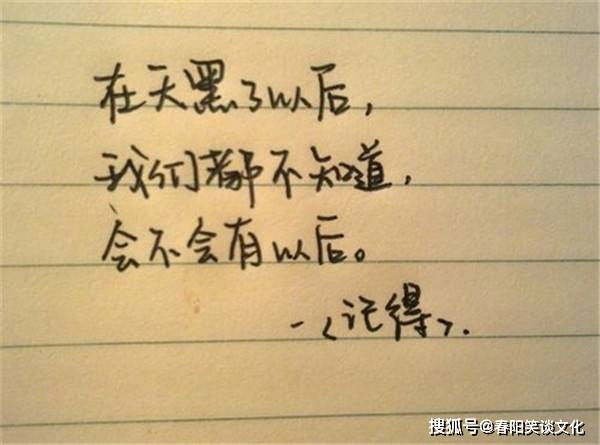 在天黑了以后，
我们都不知道，
会不会有以后。
—〈记得〉.
搜狐号@春阳笑谈文化